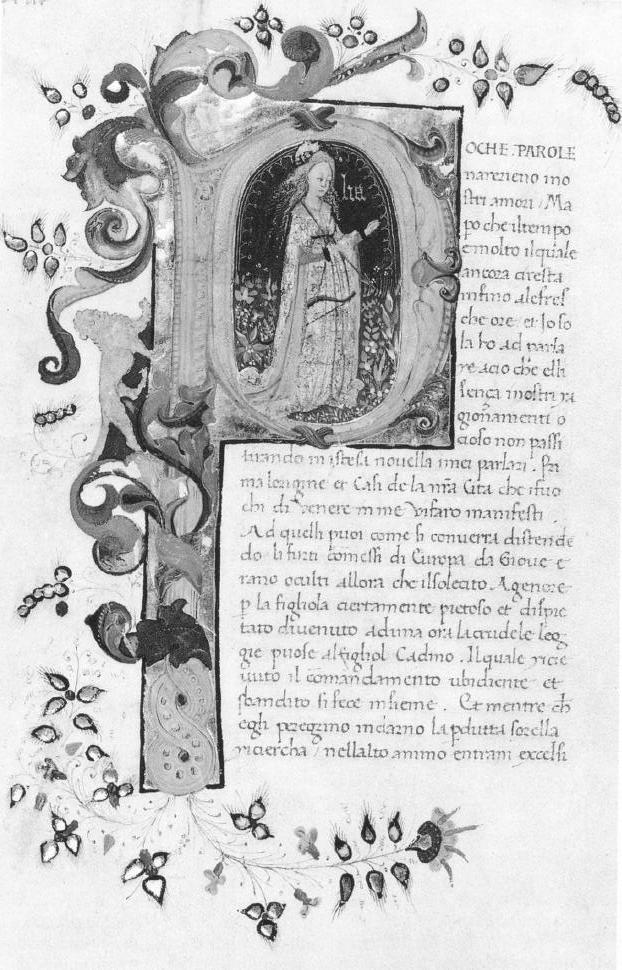 P
lia
OCHE PAROLE
narrieno ino
stri amori / Ma
po che il tempo
e molto il quale
ancora ci resta
infino ale fres
che ore . et Io so
la ho ad parla
re acio che elli
senza mostri ra
gionamenti o
cioso non passi
tirando in istesa novella imei parlari . Pri
ma lorigine et Casi de la nr̃a Cita che i fuo
chi di Venere in me visaro manifesti .
Ad quelli puoi come si converra distende
do li furti comessi di Europa da Giove e
rano oculti allora che il solecito Agenore
p̱ la figliola ciertamente pietoso et dispie
tato divenuto ad una ora la crudele leg
gie puose al figliol Cadmo . Il quale ricie
vuto il comandamento ubidiente et
sbandito si fece insieme . Et mentre ch̃
egli peregrino indarno la p̱duta sorella
riciercha / nellalto animo entrani excelsi